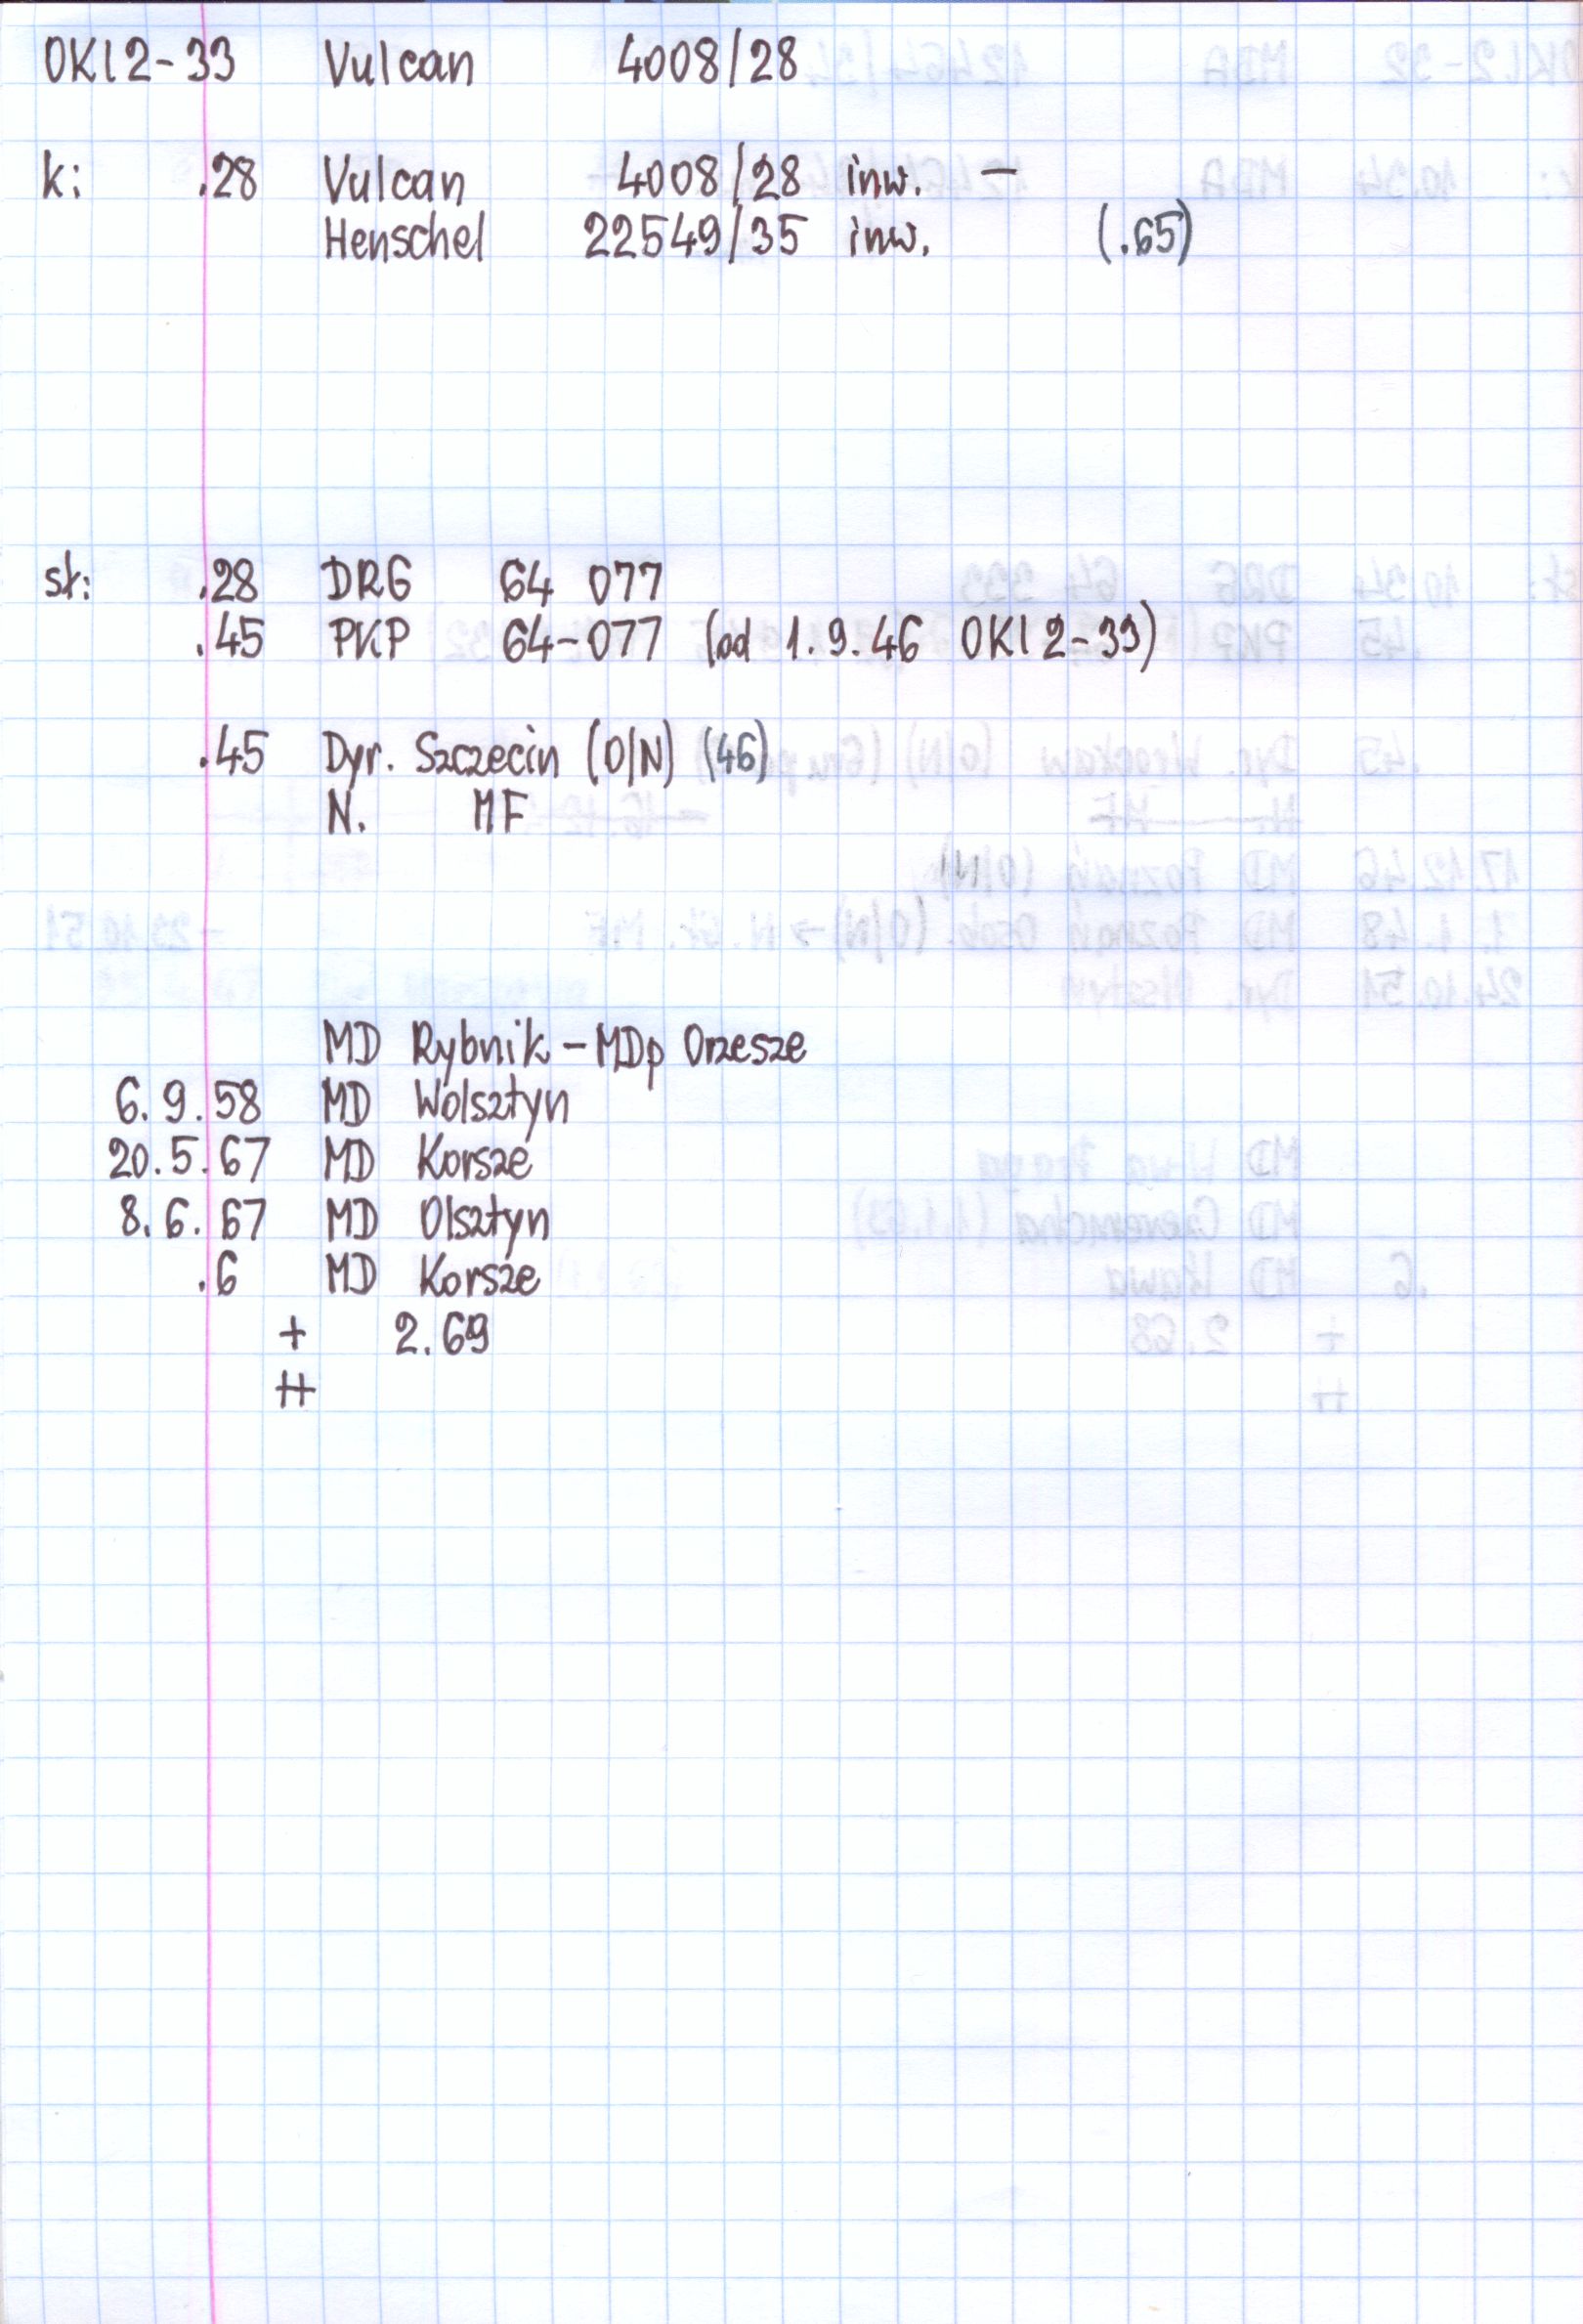 OKl2-33 Vulcan 4008/28
k: .28 Vulcan 4008/28 inw. —
Henschel 22549/35 inw. (.65)
st: .28 DRG 64 077
.45 PKP 64-077 (od 1.9.46 OKl2-33)
.45 Dyr. Szczecin (O/N) (46)
N. MF
MD Rybnik - MDp Orzesze
6.9.58 MD Wolsztyn
20.5.67 MD Korsze
8.6.67 MD Olsztyn
.6 MD Korsze
+ 2.69
++